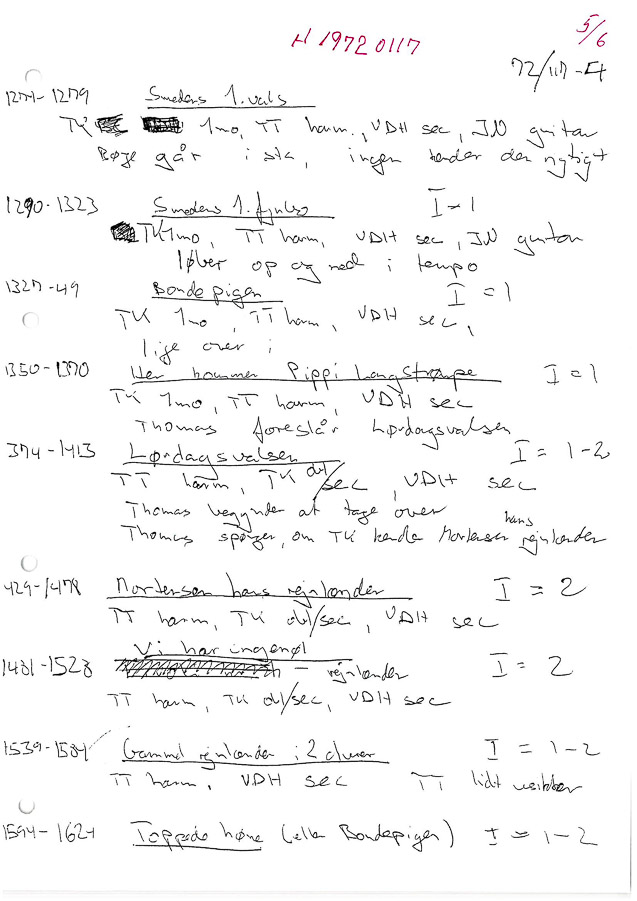 H 1972 0117
5/6
72/117-4
1271-1279 Smedens 1. vals
TK 1mo, TT harm., VDH sec, JN guitar
Børge går i stå, ingen kender den rigtigt
1290-1323 Smedens 1. fynbo I = 1
TK 1mo, TT harm, VDH sec, JN guitar
løber op og ned i tempo
1327-49 Bondepigen I = 1
TK 1mo, TT harm, VDH sec,
lige over i
1350-1370 Her kommer Pippi Langstrømpe I = 1
TK 1mo, TT harm, VDH sec
Thomas foreslår Lørdagsvalsen
374-1413 Lørdagsvalsen I = 1-2
TT harm, TK obl/sec, VDH sec
Thomas begynder at tage over
Thomas spørger, om TK kender Mortensen hans rejnlænder
429-1478 Mortensen hans rejnlænder I = 2
TT harm, TK obl/sec, VDH sec
Vi har ingen øl
1481-1528 – rejnlænder I = 2
TT harm, TK obl/sec, VDH sec
1539-1584 Gammel rejnlænder i 2 durer I = 1-2
TT harm, VDH sec TT lidt usikker
1594-1624 Toppede høne (eller Bondepigen) I = 1-2